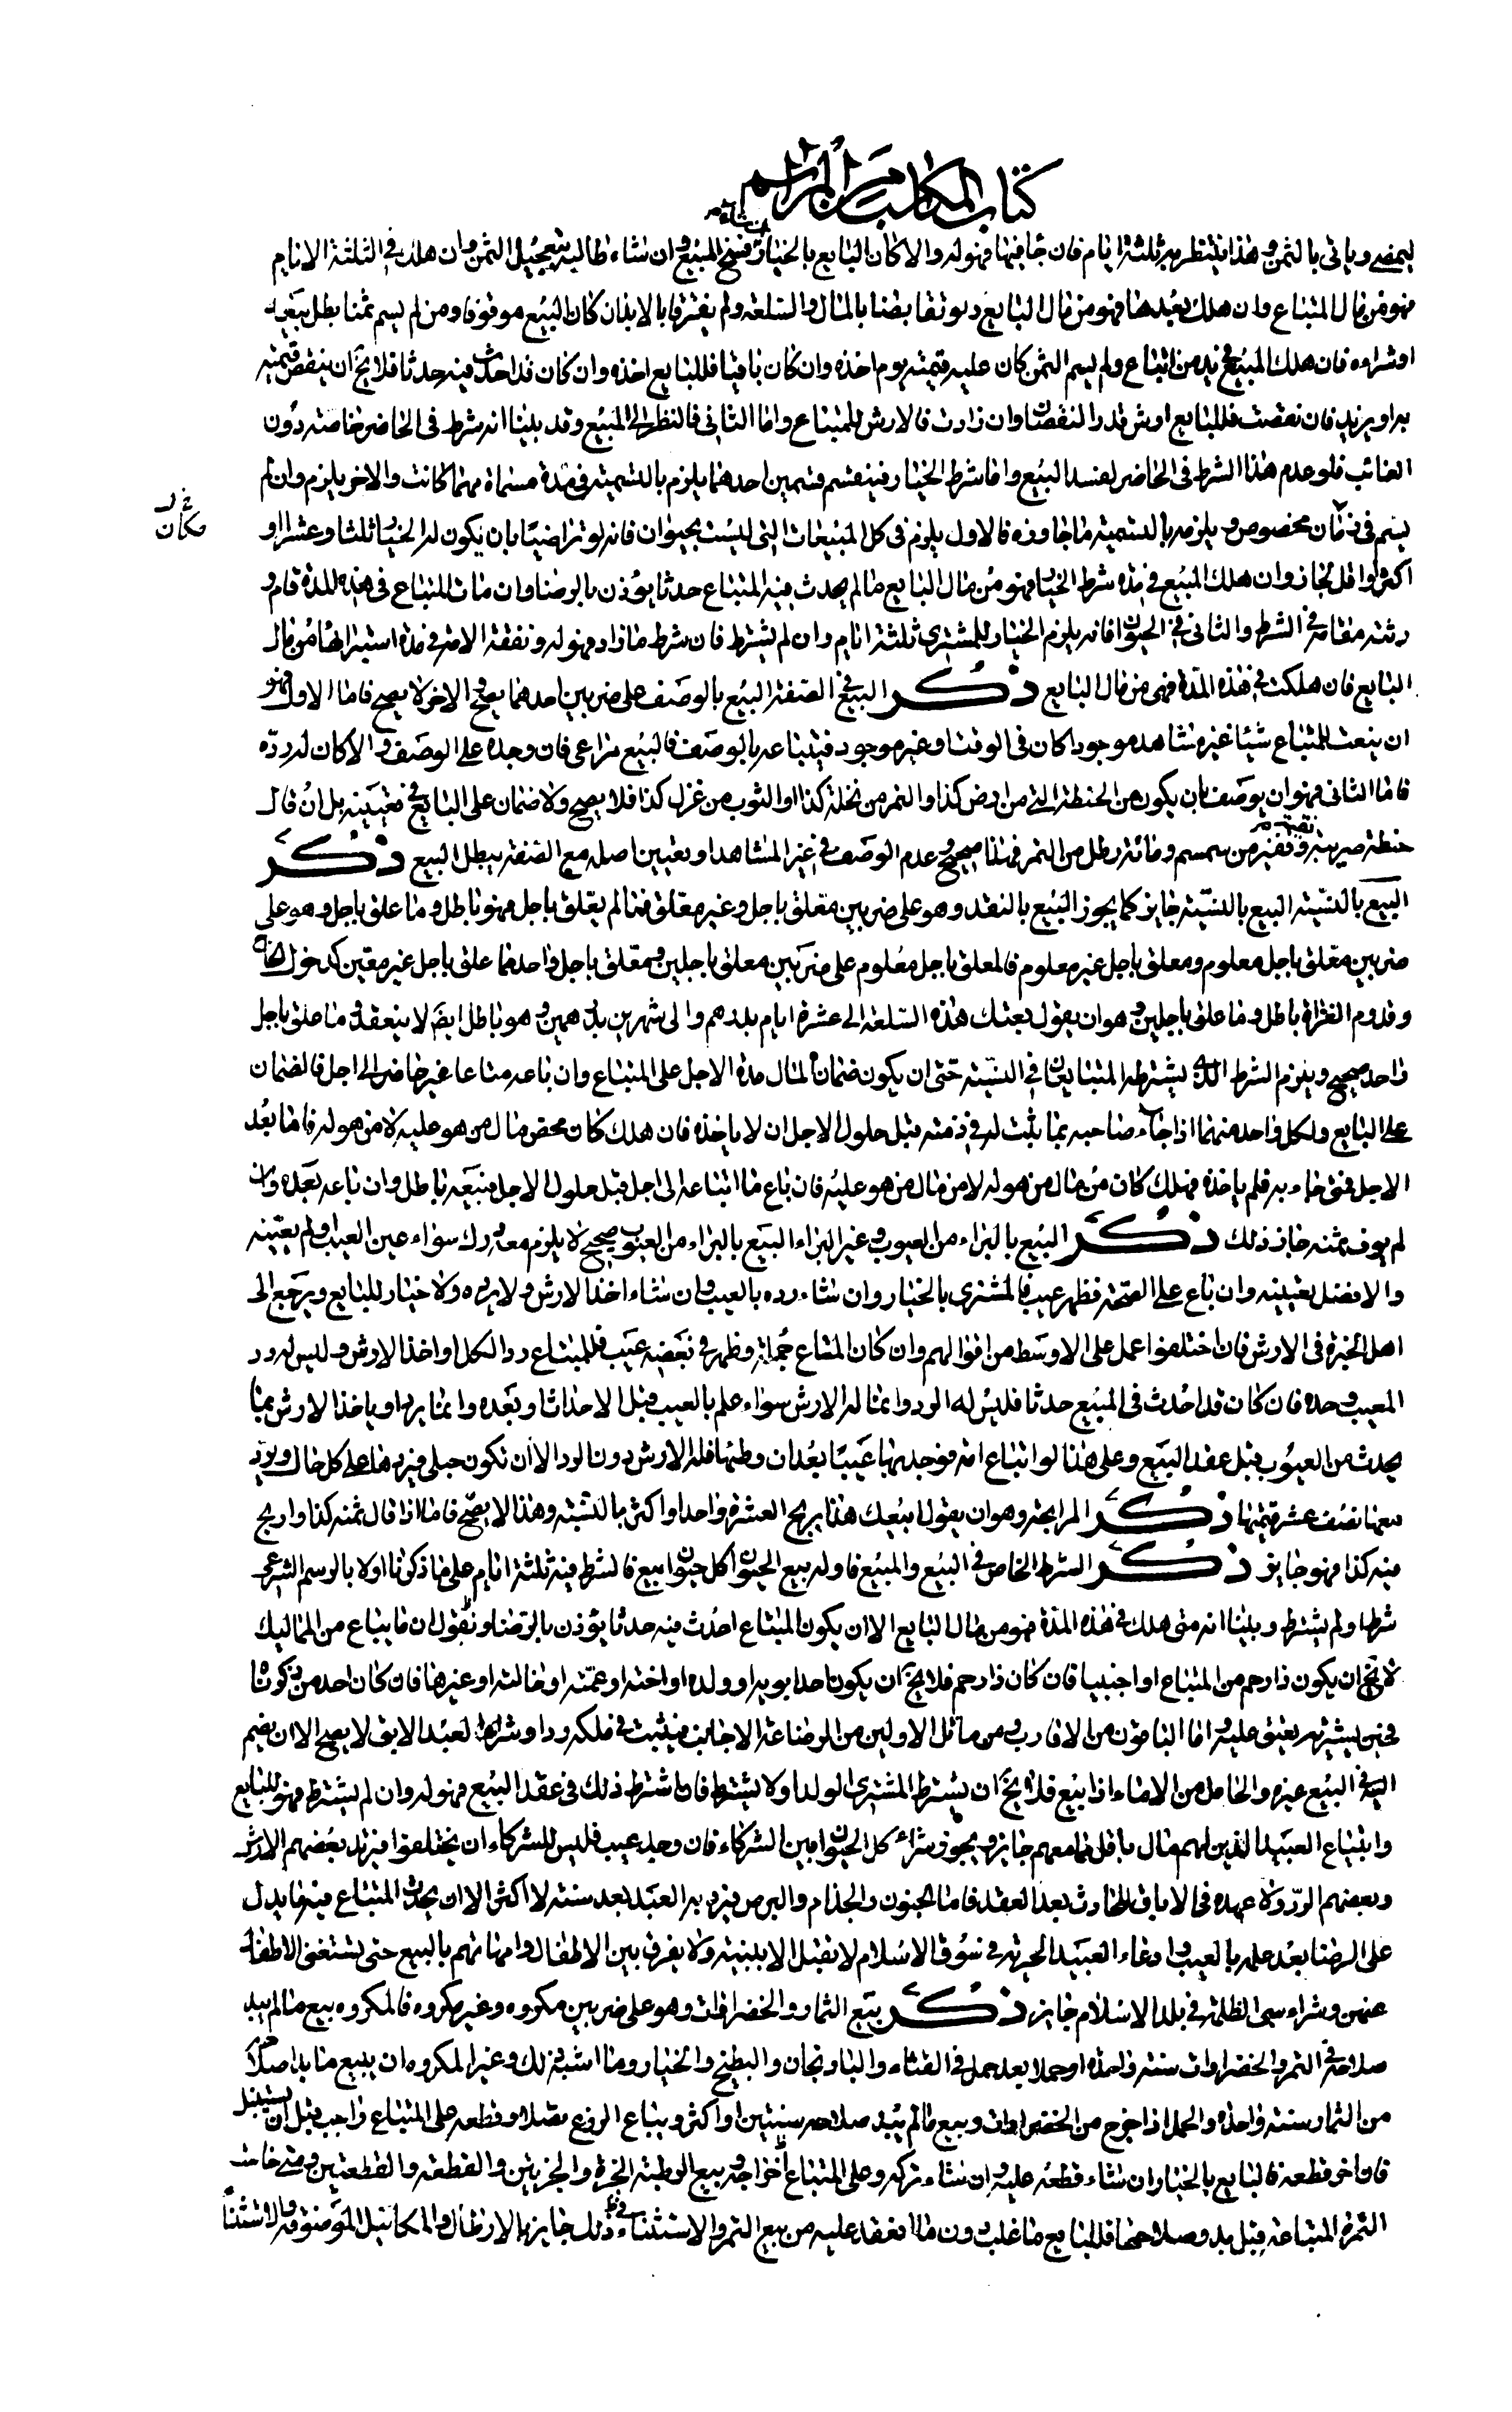 كتاب المكاسب من المراسم
ليمضى وياتى بالثمن وهذا ينتظر به ثلثة ايام فان جا فيها فهو له والا كان البايع بالخيار ان شاء فسخ المبيع وان شاء طالبه بتعجيل الثمن وان هلك في الثلثة الايام
فهو من مال المبتاع وان هلك بعدها فهو من مال البايع ولو تقابضا بالمال والسلعة ولم يفترقا بالابدان كان البيع موقوفا ومن لم يسم ثمنا بطل بيعه
او شراءه فان هلك المبيع في يد من ابتاع ولم يسم الثمن كان عليه قيمته يوم اخذه وان كان باقيا فللبايع اخذه وان كان قد احدث فيه حدثا فلا يخ ان ينقص قيمته
به او يزيد فان نقصت فللبايع ارش قدر النقصان وان زادت فالارش للمبتاع واما الثانى فالنظر الى المبيع وقد بينا انه شرط فى الحاضر خاصة دون
الغائب فلو عدم هذا الشرط فى الحاضر لفسد البيع واما شرط الخيار فينقسم قسمين احدهما يلزم بالتسمية في مدة مسماة مهما كانت والاخر يلزم وان لم
خ ر
مكان
يسم فى زمان مخصوص ويلزمه بالتسمية ما جاوزه فالاول يلزم فى كل المبيعات التى ليست بحيوان فانه لو تراضيا بان يكون له الخيار ثلثا وعشرا او
اكثر او اقل لجاز وان هلك المبيع في مدة شرط الخيار فهو من مال البايع ما لم يحدث فيه المبتاع حدثا يؤذن بالرضا وان مات المبتاع فى هذه المدة قام و
رثته مقامه في الشرط والثانى في الحيوان فانه يلزم الخيار للمشترى ثلثة ايام وان لم يشترط فان شرط ما زاد فهو له ونفقة الامة في مدة استبرائها من مال
البايع فان هلكت في هذه المدة فهى من مال البايع ذكر البيع في الصفة البيع بالوصف على ضربين احدهما يصح والاخر لا يصح فاما الاول فهو
ان ينعت للمبتاع شيئا غير مشاهد موجودا كان فى الوقت او غير موجود فيبتاعه بالوصف فالبيع مراعى فان وجده على الوصف والا كان له رده
فاما الثانى فهو ان يوصف بان يكون من الحنطة التى من ارض كذا والتمر من نخلة كذا او الثوب من غزل كذا فلا يصح ولا ضمان على البايع في تعيينه بل ان قال
حنطة صربية نقية وقفيز من سمسم ومائة رطل من التمر فهذا صحيح وعدم الوصف في غير المشاهد او تعيين اصله مع الصفة يبطل البيع ذكر
البيع بالنسية البيع بالنسية جايز كما يجوز البيع بالنقد وهو على ضربين معلق باجل وغير معلق فما لم يعلق باجل فهو باطل وما علق باجل وهو على
ضربين معلق باجل معلوم ومعلق باجل غير معلوم فالمعلق باجل معلوم على ضربين معلق باجلين ومعلق باجل واحد فما علق باجل غير معين كدخول الحاج
وقدوم الغزاة باطل وما علق باجلين وهو ان يقول بعتك هذه السلعة الى عشرة ايام بدرهم والى شهرين بدرهمين وهو باطل ايضا لا ينعقد وما علق باجل
واحد صحيح ويلزم الشرط الذى يشترطه المتبايعان في النسية حتى ان يكون ضمان المال مدة الاجل على المبتاع وان باعه متاعا غير حاضر الى اجل فالضمان
على البايع ولكل واحد منهما اذا جاء صاحبه بما يثبت له في ذمته قبل حلول الاجل ان لا ياخذه فان هلك كان من محض مال من هو عليه لا من هو له فاما بعد
الاجل فمتى جاء به فلم ياخذه فهلك كان من مال من هو له لا من مال من هو عليه فان باع ما ابتاعه الى اجل قبل حلول الاجل فبيعه باطل وان باعه بعده وان
لم يوف ثمنه جاز ذلك ذكر البيع بالبراء من العيوب وغير البراء البيع بالبراء من العيوب صحيح لا يلزم معه درك سواء عين العيب او لم يعينه
والافضل تعيينه وان باع على الصحة فظهر عيب فالمشترى بالخيار وان شاء رده بالعيب وان شاء اخذ الارش ولا يرده ولا خيار للبايع ويرجع الى
اهل الخبرة فى الارش فان اختلفوا عمل على الاوسط من اقوالهم وان كان المتاع جملة وظهر في بعضه عيب فللمبتاع رد الكل او اخذ الارش وليس له رد
المعيب وحده فان كان قد احدث فى المبيع حدثا فليس له الرد وانما له الارش سواء علم بالعيب قبل الاحداث او بعده وانما يرد او ياخذ الارش بما
يحدث من العيوب قبل عقد البيع وعلى هذا لو ابتاع امة فوجد بها عيبا بعد ان وطئها فله الارش دون الرد الا ان تكون حبلى فيردها على كل حال ويرد
معها نصف عشر قيمتها ذكر المرابحة وهو ان يقول ابيعك هذا بربح العشرة واحدا او اكثر بالنسبة وهذا لا يصح فاما اذا قال ثمنه كذا واربح
فيه كذا فهو جايز ذكر الشرط الخاص في البيع والمبيع فاوله بيع الحيوان كل حيوان بيع فالشرط فيه ثلثة ايام على ما ذكرنا اولا بالرسم الشرعى
شرطا ولم يشترط وبينا انه متى هلك في هذه المدة فهو من مال البايع الا ان يكون المبتاع احدث فيه حدثا يؤذن بالرضا ونقول ان ما يبتاع من المماليك
لا يخ ان يكون ذا رحم من المبتاع او اجنبيا فان كان ذا رحم فلا يخ ان يكون احد ابويه او ولده او اخته او عمته او خالته او غيرها فان كان احد من ذكرنا
فحين يشتريه يعتق عليه واما الباقون من الاقارب ومن ماثل الاولين من الرضاعة الاجانب فيثبت في ملكه وشراء العبد الابق لا يصح الا ان يضم
اليه في البيع غيره والحامل من الاماء اذا بيع فلا يخ ان يشترط المشترى الولد او لا يشترط فان اشترط ذلك فى عقد البيع فهو له وان لم يشترط فهو للبايع
وابتياع العبيد الذين لهم مال باقل مما معهم جايز ويجوز شراء كل الحيوان بين الشركاء فان وجد عيب فليس للشركاء ان يختلفوا فيريد بعضهم الارش
وبعضهم الرد ولا عهدة فى الاباق الحادث بعد العقد فاما الجنون والجذام والبرص فيرد به العبد بعد سنة لا اكثر الا ان يحدث المبتاع فيه ما يدل
على الرضا بعد علمه بالعيب وادعاء العبيد الحرية في سوق الاسلام لا تقبل الا ببينة ولا يفرق بين الاطفال وامهاتهم بالبيع حتى يستغنى الاطفال
عنهن وشراء سبى الظلمة في بلد الاسلام جايز ذكر بيع الثمار والخضراوات وهو على ضربين مكروه وغير مكروه فالمكروه بيع ما لم يبد
صلاحه في الثمر والخضراوات سنة واحدة او حملا بعد حمل فى القثاء والباذنجان والبطيخ والخيار وما اشبه ذلك وغير المكروه ان يبيع ما بدا صلاحه
من الثمار سنة واحدة والحمل اذا خرج من الخضراوات وبيع ما لم يبد صلاحه سنتين او اكثر ويبتاع الزرع قصيلا وقطعه على المبتاع واجب قبل ان يسنبل
فان اخر قطعه فالبايع بالخيار ان شاء قطعه عليه وان شاء تركه وعلى المبتاع خراجه وبيع الرطبة الجزة والجزتين والقطعة والقطعتين ومتى خاست
الثمرة المبتاعة قبل بدو صلاحها فللبايع ما غلب دون ما انعقد عليه من بيع الثمر والاستثناء في ذلك جايز بالارطال والمكائيل الموصوفة والاستثناء